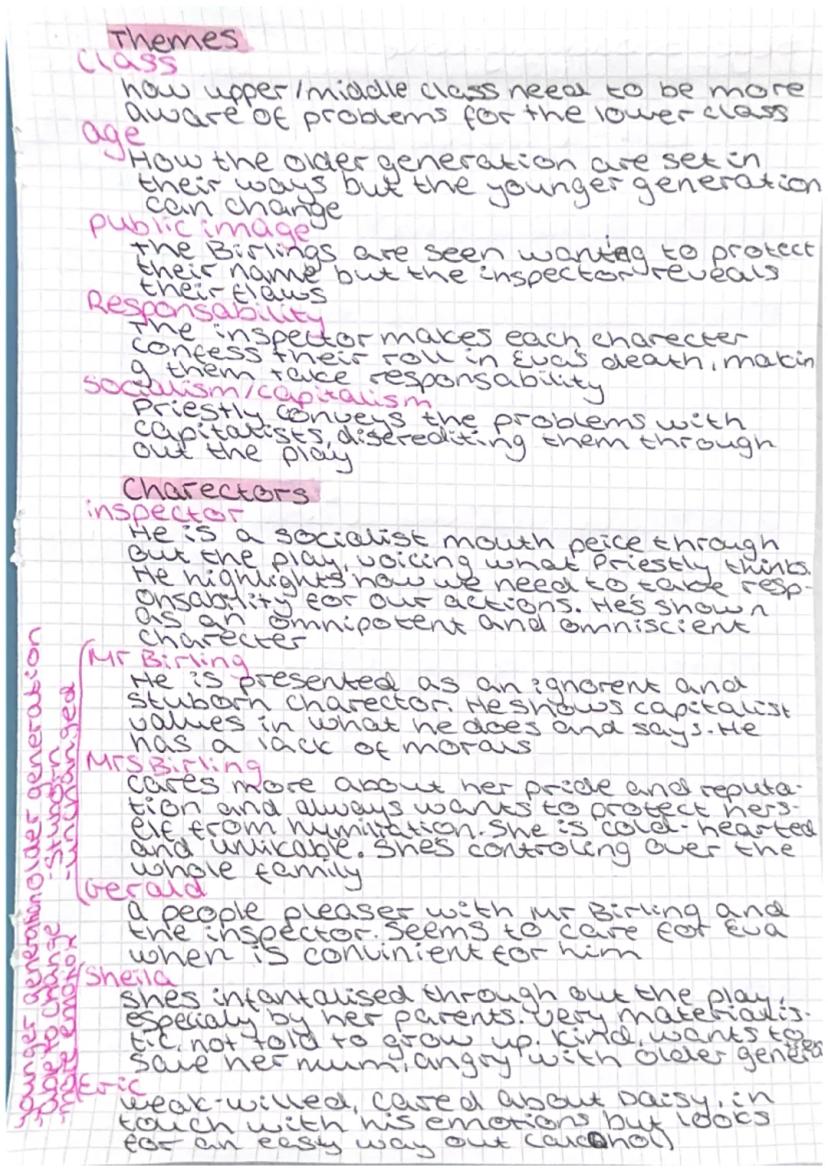 Themes
Class
how upper/middle class need to be more
aware of problems for the lower class
age
How the older generation are set in
their ways but the younger generation
can change
public image
the Birlings are seen wanting to protect
their name but the inspector reveals
their flaws
Responsability
The inspector makes each charecter
confess their roll in Eva's death, makin
g them take responsability
socialism/capitalism
Priestly conveys the problems with
capitatists, disrediting them through
out the play
Charectors
inspector
He is a socialist mouth peice through
out the play, voicing what Priestly thinks.
He highlights how we need to take resp-
onsability for our actions. He's shown
as an omnipotent and omniscient
charecter
Mr Birling
He is presented as an ignorent and
stuborn charector. He shows capitalist
values in what he does and says. He
has a lack of morals
Mrs Birling
cares more about her pride and reputa-
tion and always wants to protect hers-
elf from humiliation. She is cold-hearted
and unlikable. Shes controling over the
whole family
Gerald
a people pleaser with Mr Birling and
the inspector. Seems to care for Eva
when is convinient for him
older generation
-stuborn
-unchanged
Sheila
shes infantalised through out the play,
especialy by her parents. Very materialis-
tic, not told to grow up. Kind, wants to
save her mum, angry with older genera
Eric
weak-willed, cared about Daisy, in
touch with his emotions but looks
for an easy way out (alcohol)
younger generation
-able to change
-more emotion